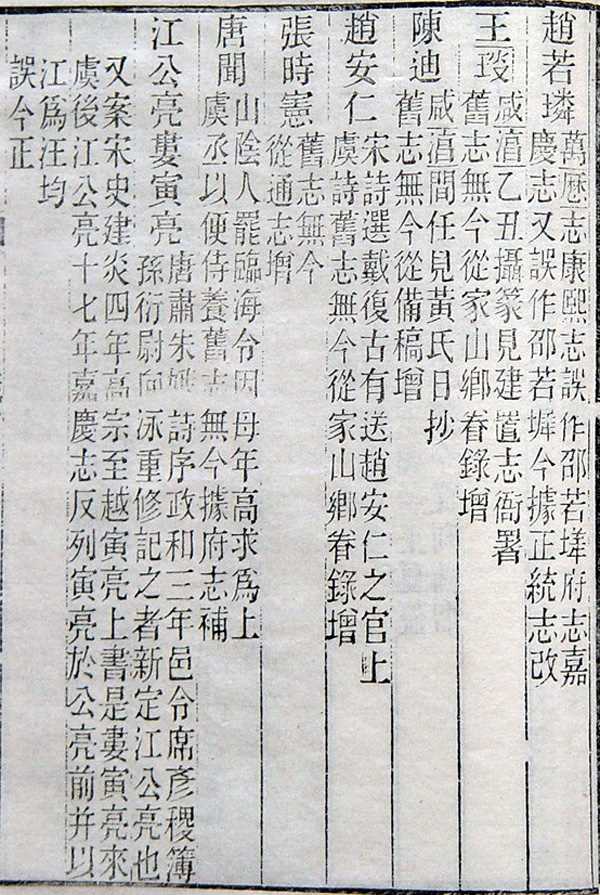 趙若璘
萬厯志康熙志誤作邵若府志嘉
慶志又誤作邵若今據正統志改
王
咸淳乙丑攝篆見建置志衙署
舊志無今從家山鄉眷錄增
陳迪
咸淳間任見黃氏日抄
舊志無今從備稿增
趙安仁
宋詩選戴復古有送趙安仁之官上
虞詩舊志無今從家山鄉眷錄增
張時憲
舊志無今
從通志增
唐聞
山陰人罷臨海令因母年高求爲上
虞丞以便侍養舊志無今據府志補
江公亮婁寅亮
唐肅朱娥詩序政和三年邑令席彥稷簿
孫衍尉向泳重修記之者新定江公亮也
又案宋史建炎四年高宗至越寅亮上書是婁寅亮來
虞後江公亮十七年嘉慶志反列寅亮於公亮前并以
江爲汪均
誤今正